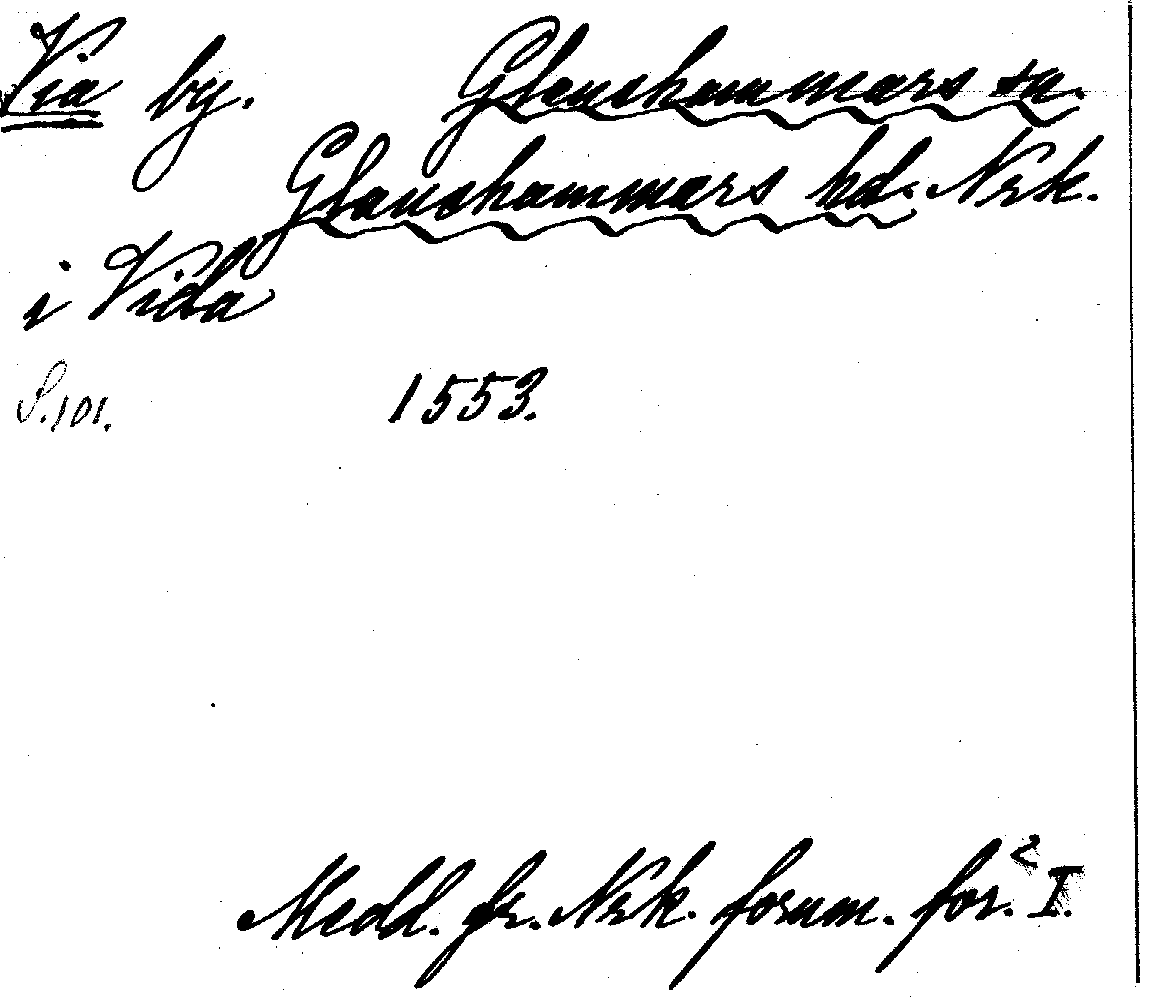 Via by. Glanshammars sn.
Glanshammars hd. Nrk.
i Vida
S. 101. 1553.
Medd. fr. Nrk. fornm. för. I.